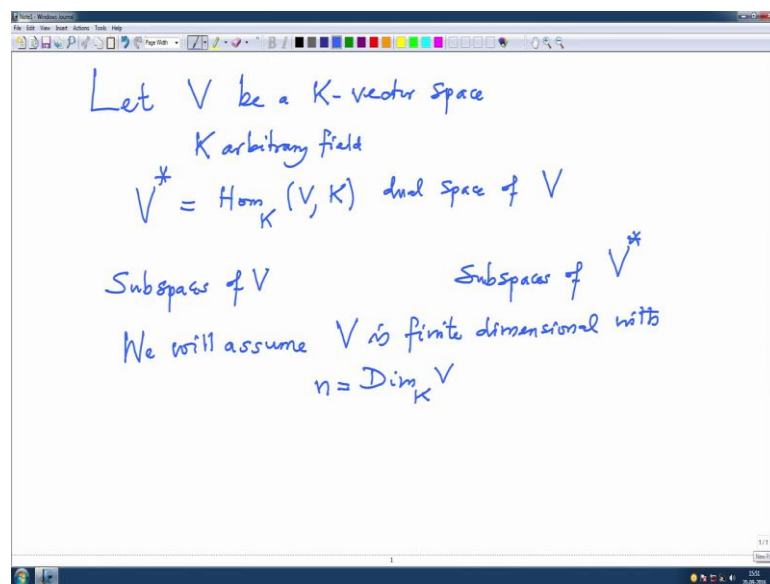 Note1 - Windows Journal
File Edit View Insert Actions Tools Help
Page Width
B I
Let V be a K-vector space
K arbitrary field
V* = Hom_K (V, K) dual space of V
Subspaces of V Subspaces of V*
We will assume V is finite dimensional with
n = Dim_K V
1/1
1
15:51